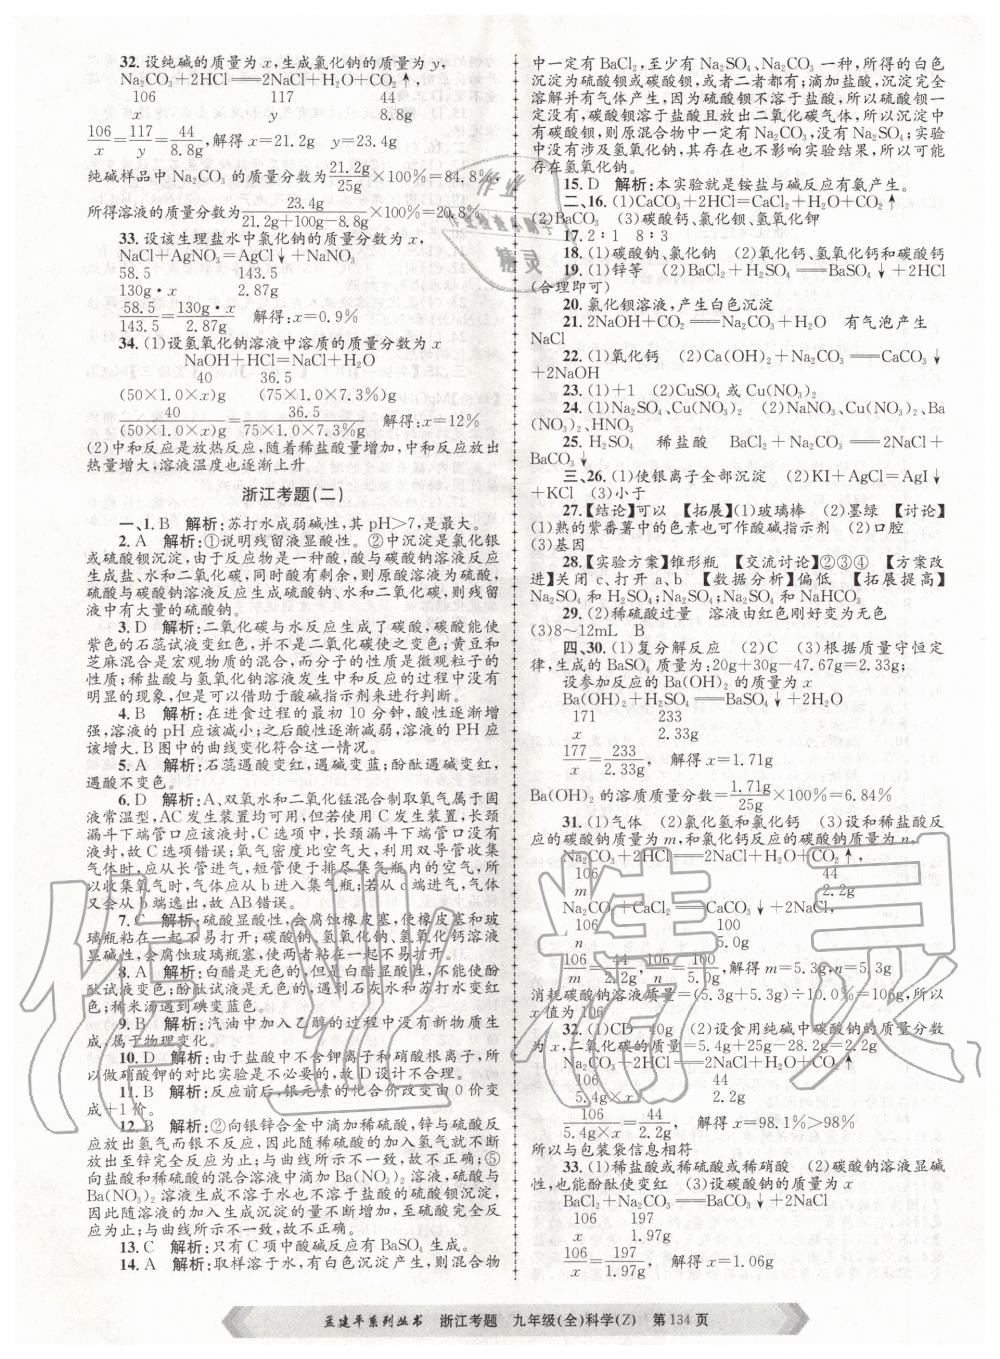 32. 设纯碱的质量为x,生成氯化钠的质量为y,
Na₂CO₃+2HCl══2NaCl+H₂O+CO₂↑,
106 117 44
x y 8.8g
106/x=117/y=44/8.8g,解得x=21.2g y=23.4g
纯碱样品中Na₂CO₃的质量分数为21.2g/25g×100%=84.8%
所得溶液的质量分数为23.4g/(21.2g+100g-8.8g)×100%=20.8%
33. 设该生理盐水中氯化钠的质量分数为x,
NaCl+AgNO₃=AgCl↓+NaNO₃
58.5 143.5
130g·x 2.87g
58.5/143.5=130g·x/2.87g 解得:x=0.9%
34. (1)设氢氧化钠溶液中溶质的质量分数为x
NaOH+HCl=NaCl+H₂O
40 36.5
(50×1.0×x)g (75×1.0×7.3%)g
40/(50×1.0×x)g=36.5/75×1.0×7.3%g 解得:x=12%
(2)中和反应是放热反应,随着稀盐酸量增加,中和反应放出
热量增大,溶液温度也逐渐上升
浙江考题(二)
一、1. B 解析:苏打水成弱碱性,其pH>7,是最大。
2. A 解析:①说明残留液显酸性。②中沉淀是氯化银
或硫酸钡沉淀,由于反应物是一种酸,酸与碳酸钠溶液反应
生成盐、水和二氧化碳,同时酸有剩余,则原酸溶液为硫酸,
硫酸与碳酸钠溶液反应生成硫酸钠、水和二氧化碳,则残留
液中有大量的硫酸钠。
3. D 解析:二氧化碳与水反应生成了碳酸,碳酸能使
紫色的石蕊试液变红色,并不是二氧化碳使之变色;黄豆和
芝麻混合是宏观物质的混合,而分子的性质是微观粒子的
性质;稀盐酸与氢氧化钠溶液发生中和反应的过程中没有
明显的现象,但是可以借助于酸碱指示剂来进行判断。
4. B 解析:在进食过程的最初10分钟,酸性逐渐增
强,溶液的pH应该减小;之后酸性逐渐减弱,溶液的PH应
该增大.B图中的曲线变化符合这一情况。
5. A 解析:石蕊遇酸变红,遇碱变蓝;酚酞遇碱变红,
遇酸不变色。
6. D 解析:A、双氧水和二氧化锰混合制取氧气属于固
液常温型,AC发生装置均可用,但若使用C发生装置,长颈
漏斗下端管口应该液封,C选项中,长颈漏斗下端管口没有
液封,故C选项错误;氧气密度比空气大,利用双导管收集
气体时,应从长管进气,短管便于排尽集气瓶内的空气,所
以收集氧气时,气体应从b进入集气瓶;若从a端进气,气体
又会从b端逸出,故AB错误。
7. C 解析:硫酸显酸性,会腐蚀橡皮塞,使橡皮塞和玻
璃瓶粘在一起不易打开;碳酸钠、氢氧化钠、氢氧化钙溶液
显碱性,会腐蚀玻璃瓶塞,使两者粘在一起不易打开。
8. A 解析:白醋是无色的,但是白醋显酸性,不能使酚
酞试液变色;酚酞试液是无色的,遇到石灰水和苏打水变红
色;稀米汤遇到碘变蓝色。
9. B 解析:汽油中加入乙醇的过程中没有新物质生
成,属于物理变化。
10. D 解析:由于盐酸中不含钾离子和硝酸根离子,所
以做硝酸钾的对比实验是不必要的,故D设计不合理。
11. B 解析:反应前后,银元素的化合价改变由0价变
成+1价。
12. B 解析:②向银锌合金中滴加稀硫酸,锌与硫酸反
应放出氢气而银不反应,因此随稀硫酸的加入氢气就不断
放出至锌完全反应为止;与曲线所示不一致,故不正确;⑤
向盐酸和稀硫酸的混合溶液中滴加Ba(NO₃)₂溶液,硫酸与
Ba(NO₃)₂溶液生成不溶于水也不溶于盐酸的硫酸钡沉淀,
因此随溶液的加入生成沉淀的量不断增加,至硫酸完全反
应为止;与曲线所示不一致,故不正确。
13. C 解析:只有C项中酸碱反应有BaSO₄生成。
14. A 解析:取样溶于水,有白色沉淀产生,则混合物
中一定有BaCl₂,至少有Na₂SO₄、Na₂CO₃一种,所得的白色
沉淀为硫酸钡或碳酸钡,或者二者都有;滴加盐酸,沉淀完全
溶解并有气体产生,因为硫酸钡不溶于盐酸,所以硫酸钡一
定没有,碳酸钡溶于盐酸且放出二氧化碳气体,所以沉淀中
有碳酸钡,则原混合物中一定有Na₂CO₃,没有Na₂SO₄;实验
中没有涉及氢氧化钠,其存在也不影响实验结果,所以可能
存在氢氧化钠。
15. D 解析:本实验就是铵盐与碱反应有氨产生。
二、16. (1)CaCO₃+2HCl=CaCl₂+H₂O+CO₂↑
(2)BaCO₃ (3)碳酸钙、氯化钡、氢氧化钾
17. 2∶1 8∶3
18. (1)碳酸钠、氯化钠 (2)氧化钙、氢氧化钙和碳酸钙
19. (1)锌等 (2)BaCl₂+H₂SO₄══BaSO₄↓+2HCl
(合理即可)
20. 氯化钡溶液,产生白色沉淀
21. 2NaOH+CO₂══Na₂CO₃+H₂O 有气泡产生
NaCl
22. (1)氧化钙 (2)Ca(OH)₂+Na₂CO₃══CaCO₃↓
+2NaOH
23. (1)+1 (2)CuSO₄或Cu(NO₃)₂
24. (1)Na₂SO₄、Cu(NO₃)₂ (2)NaNO₃、Cu(NO₃)₂、Ba
(NO₃)₂、HNO₃
25. H₂SO₄ 稀盐酸 BaCl₂+Na₂CO₃══2NaCl+
BaCO₃↓
三、26. (1)使银离子全部沉淀 (2)KI+AgCl=AgI↓
+KCl (3)小于
27. 【结论】可以 【拓展】(1)玻璃棒 (2)墨绿 【讨论】
(1)熟的紫番薯中的色素也可作酸碱指示剂 (2)口腔
(3)基因
28. 【实验方案】锥形瓶 【交流讨论】②③④ 【方案改
进】关闭c、打开a、b 【数据分析】偏低 【拓展提高】
Na₂SO₄和H₂SO₄;Na₂SO₄;Na₂SO₄和NaHCO₃
29. (2)稀硫酸过量 溶液由红色刚好变为无色
(3)8~12mL B
四、30. (1)复分解反应 (2)C (3)根据质量守恒定
律,生成的BaSO₄质量为:20g+30g-47.67g=2.33g;
设参加反应的Ba(OH)₂的质量为x
Ba(OH)₂+H₂SO₄══BaSO₄↓+2H₂O
171 233
x 2.33g
177/x=233/2.33g, 解得x=1.71g
Ba(OH)₂的溶质质量分数=1.71g/25g×100%=6.84%
31. (1)气体 (2)氯化氢和氯化钙 (3)设和稀盐酸反
应的碳酸钠质量为m,和氯化钙反应的碳酸钠质量为n,
Na₂CO₃+2HCl══2NaCl+H₂O+CO₂↑,
106 44
m 2.2g
Na₂CO₃+CaCl₂══CaCO₃↓+2NaCl,
106 100
n 5.0g
106/m=44/2.2g,106/n=100/5.0g,解得m=5.3g,n=5.3g
消耗碳酸钠溶液质量=(5.3g+5.3g)÷10.0%=106g,所以
x值为106
32. (1)CD 40g (2)设食用纯碱中碳酸钠的质量分数
为x,二氧化碳的质量=5.4g+25g-28.2g=2.2g
Na₂CO₃+2HCl══2NaCl+H₂O+CO₂↑
106 44
5.4g×x 2.2g
106/5.4g×x=44/2.2g, 解得x=98.1%>98%
所以与包装袋信息相符
33. (1)稀盐酸或稀硫酸或稀硝酸 (2)碳酸钠溶液显碱
性,也能酚酞变红 (3)设碳酸钠的质量为x
BaCl₂+Na₂CO₃══BaCO₃↓+2NaCl
106 197
x 1.97g
106/x=197/1.97g, 解得x=1.06g
孟建平系列丛书 浙江考题 九年级(全)科学(Z) 第134页
作业精灵